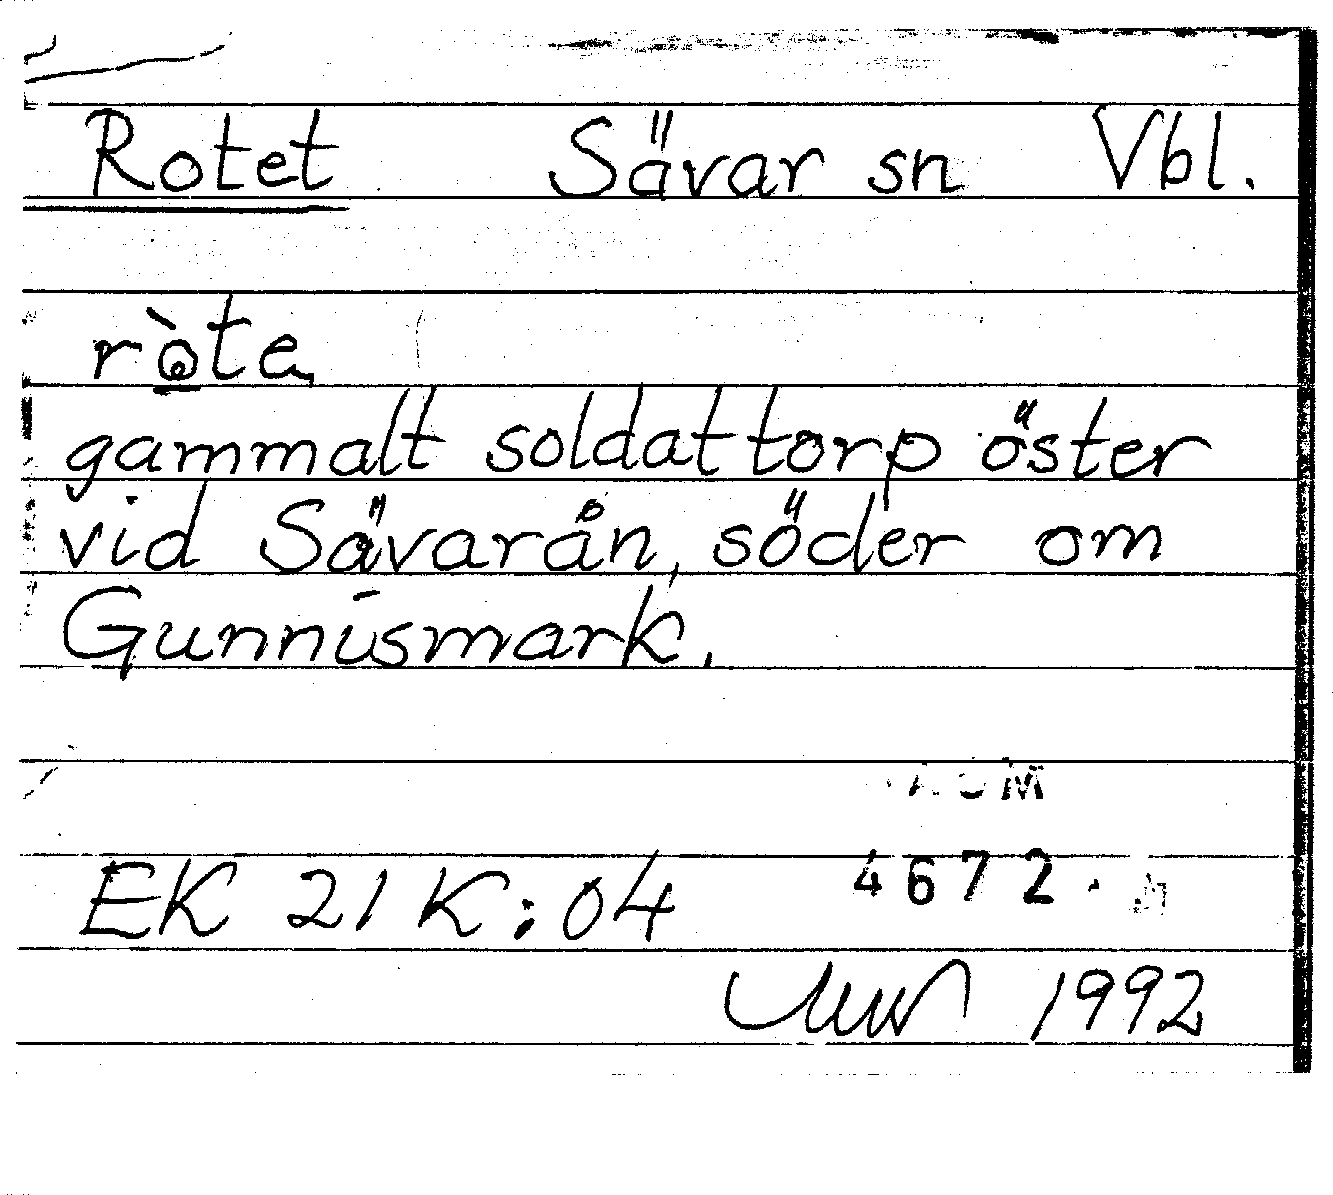 Rotet Sävar sn Vbl.
ròte
gammalt soldattorp öster
vid Sävarån, söder om
Gunnismark.
EK 21 K:04 4672
1992